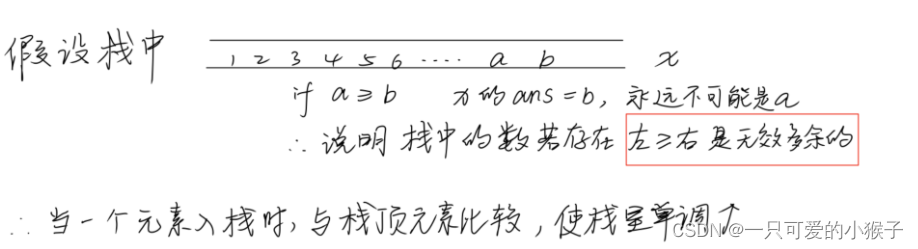 假设栈中 1 2 3 4 5 6 ···· a b x
if a≥b x的ans=b, 永远不可能是a
∴说明 栈中的数若存在 左≥右 是无效多余的
∴当一个元素入栈时, 与栈顶元素比较, 使栈呈单调↑
CSDN @一只可爱的小猴子